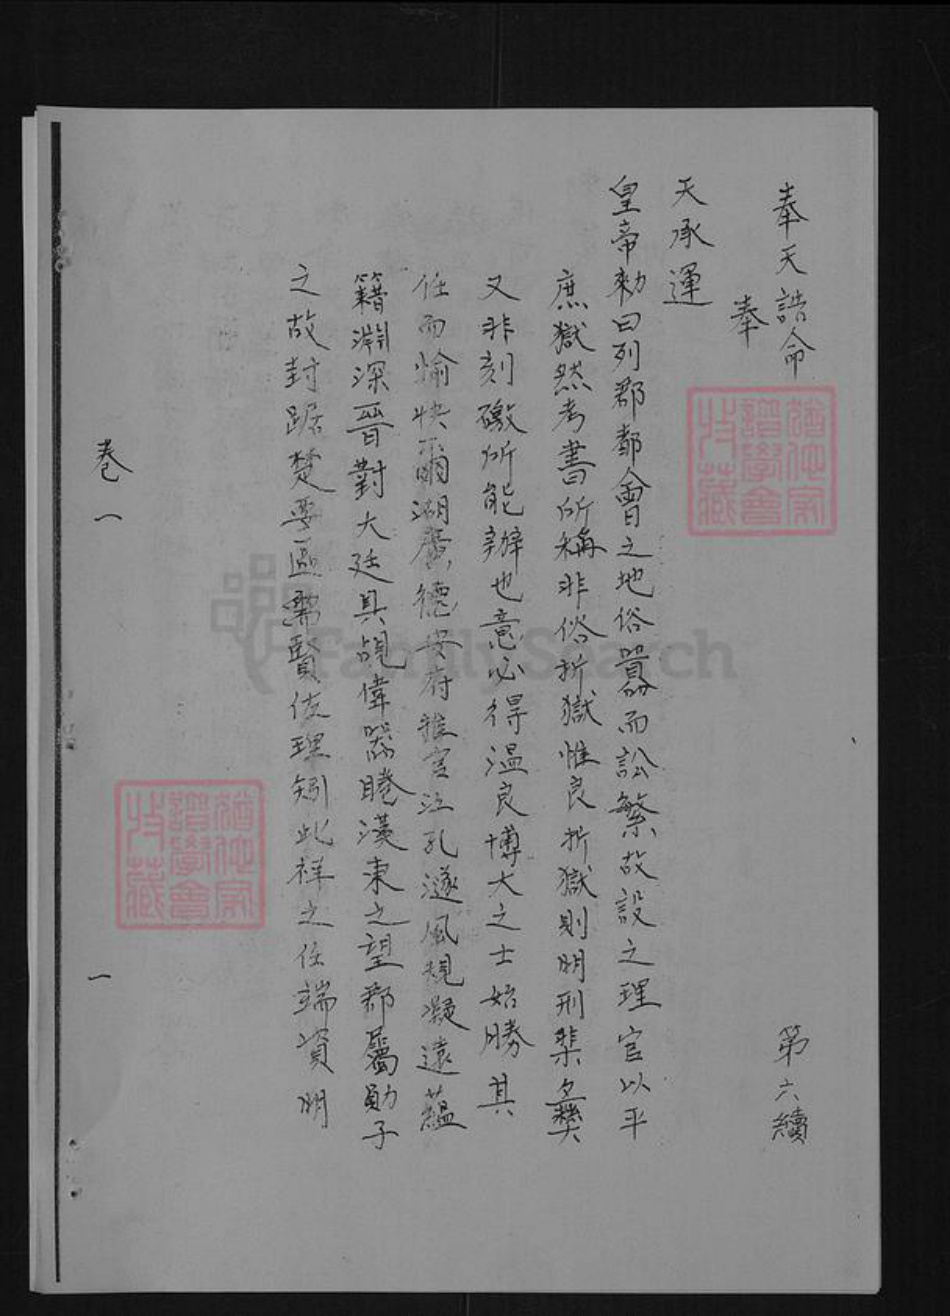 奉天誥命
第六續
奉
天承運
皇帝勑曰列郡都會之地俗囂而訟繁故設之理官以平
庶獄然考書所稱非佞折獄惟良折獄則明刑棐彝
又非刻礉所能辦也意必得温良博大之士始勝其
任而愉快爾湖廣德安府推官江孔遂風規凝遠蘊
籍淵深晉對大廷具覘偉器睠漢東之望郡屬鄖子
之故封踞楚要區需賢佐理矧此祥之任端資明
卷一
一
FamilySearch